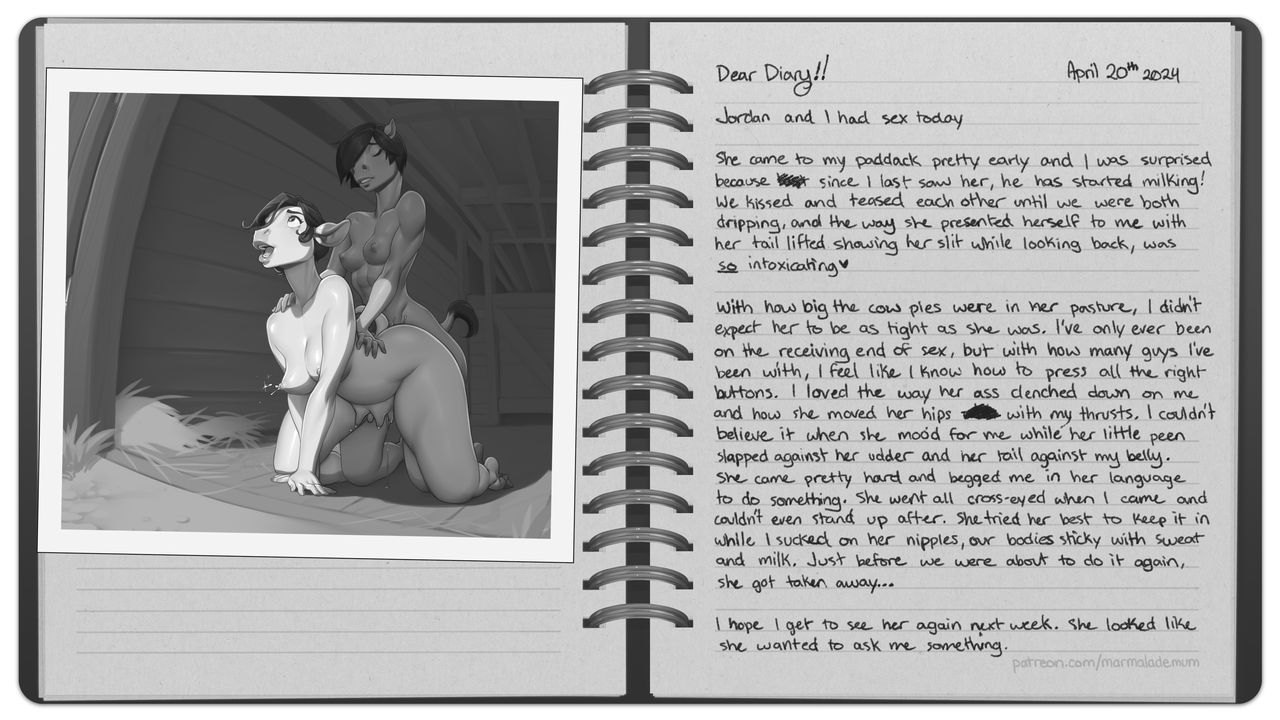 Dear Diary!! April 20th 2024
Jordan and I had sex today
She came to my paddack pretty early and I was surprised
because since I last saw her, he has started milking!
We kissed and teased each other until we were both
dripping, and the way she presented herself to me with
her tail lifted showing her slit while looking back, was
so intoxicating♥
With how big the cow pies were in her pasture, I didn't
expect her to be as tight as she was. I've only ever been
on the receiving end of sex, but with how many guys I've
been with, I feel like I know how to press all the right
buttons. I loved the way her ass clenched down on me
and how she moved her hips with my thrusts. I couldn't
believe it when she moo'd for me while her little peen
slapped against her udder and her tail against my belly.
She came pretty hard and begged me in her language
to do something. She went all cross-eyed when I came and
couldn't even stand up after. She tried her best to keep it in
while I sucked on her nipples, our bodies sticky with sweat
and milk. Just before we were about to do it again,
she got taken away...
I hope I get to see her again next week. She looked like
she wanted to ask me something.
patreon.com/marmalademum